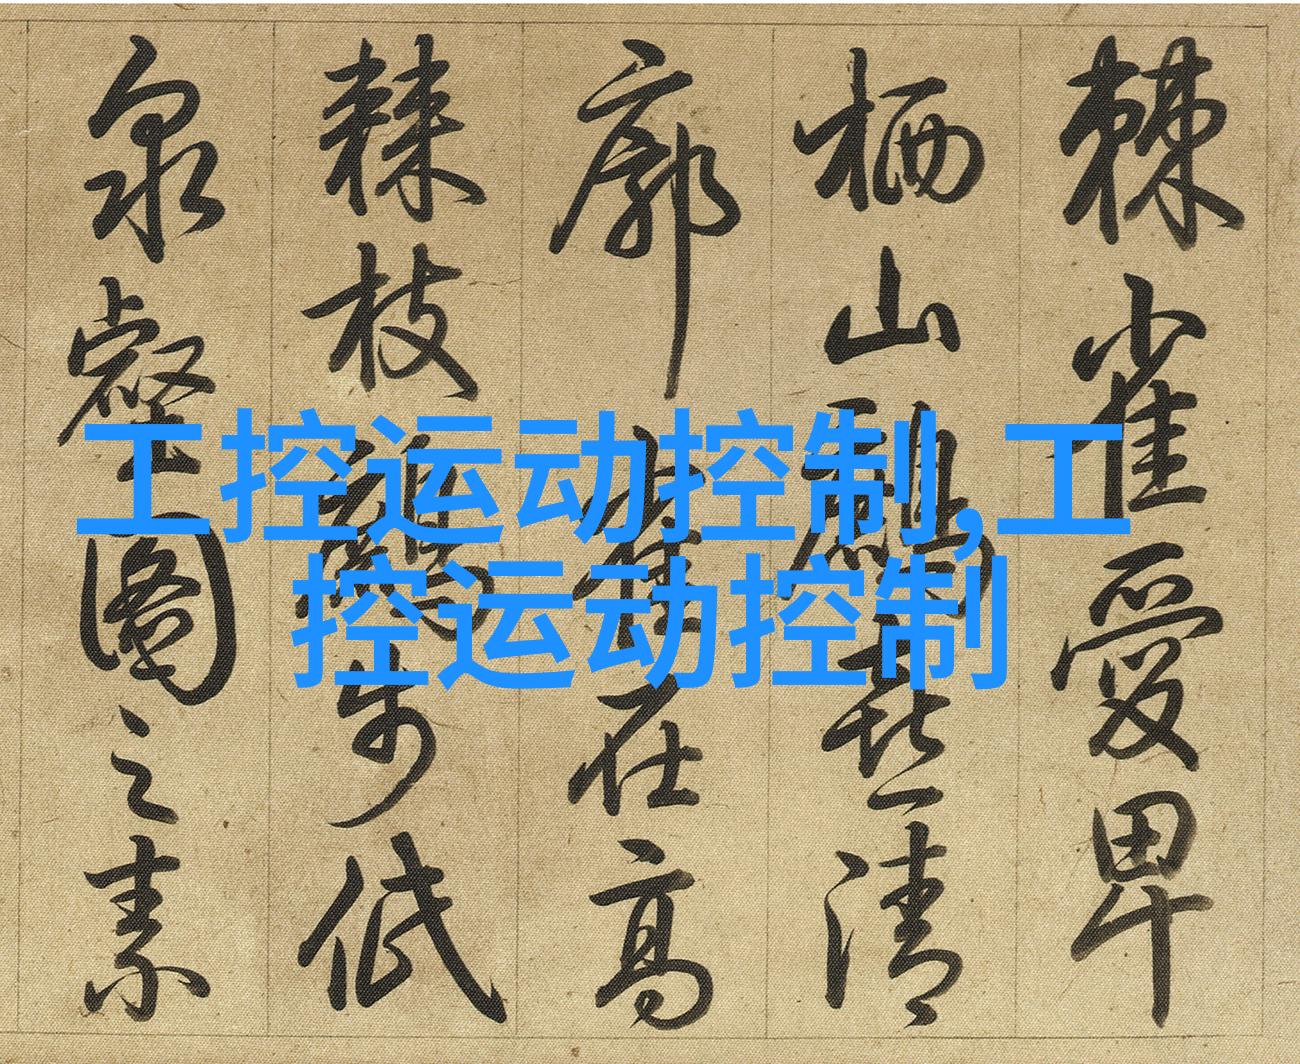 工控运动控制,工
控运动控制
棘雀愛卑
栖山清
廓在高
棘枝步低
泉壑圖之素